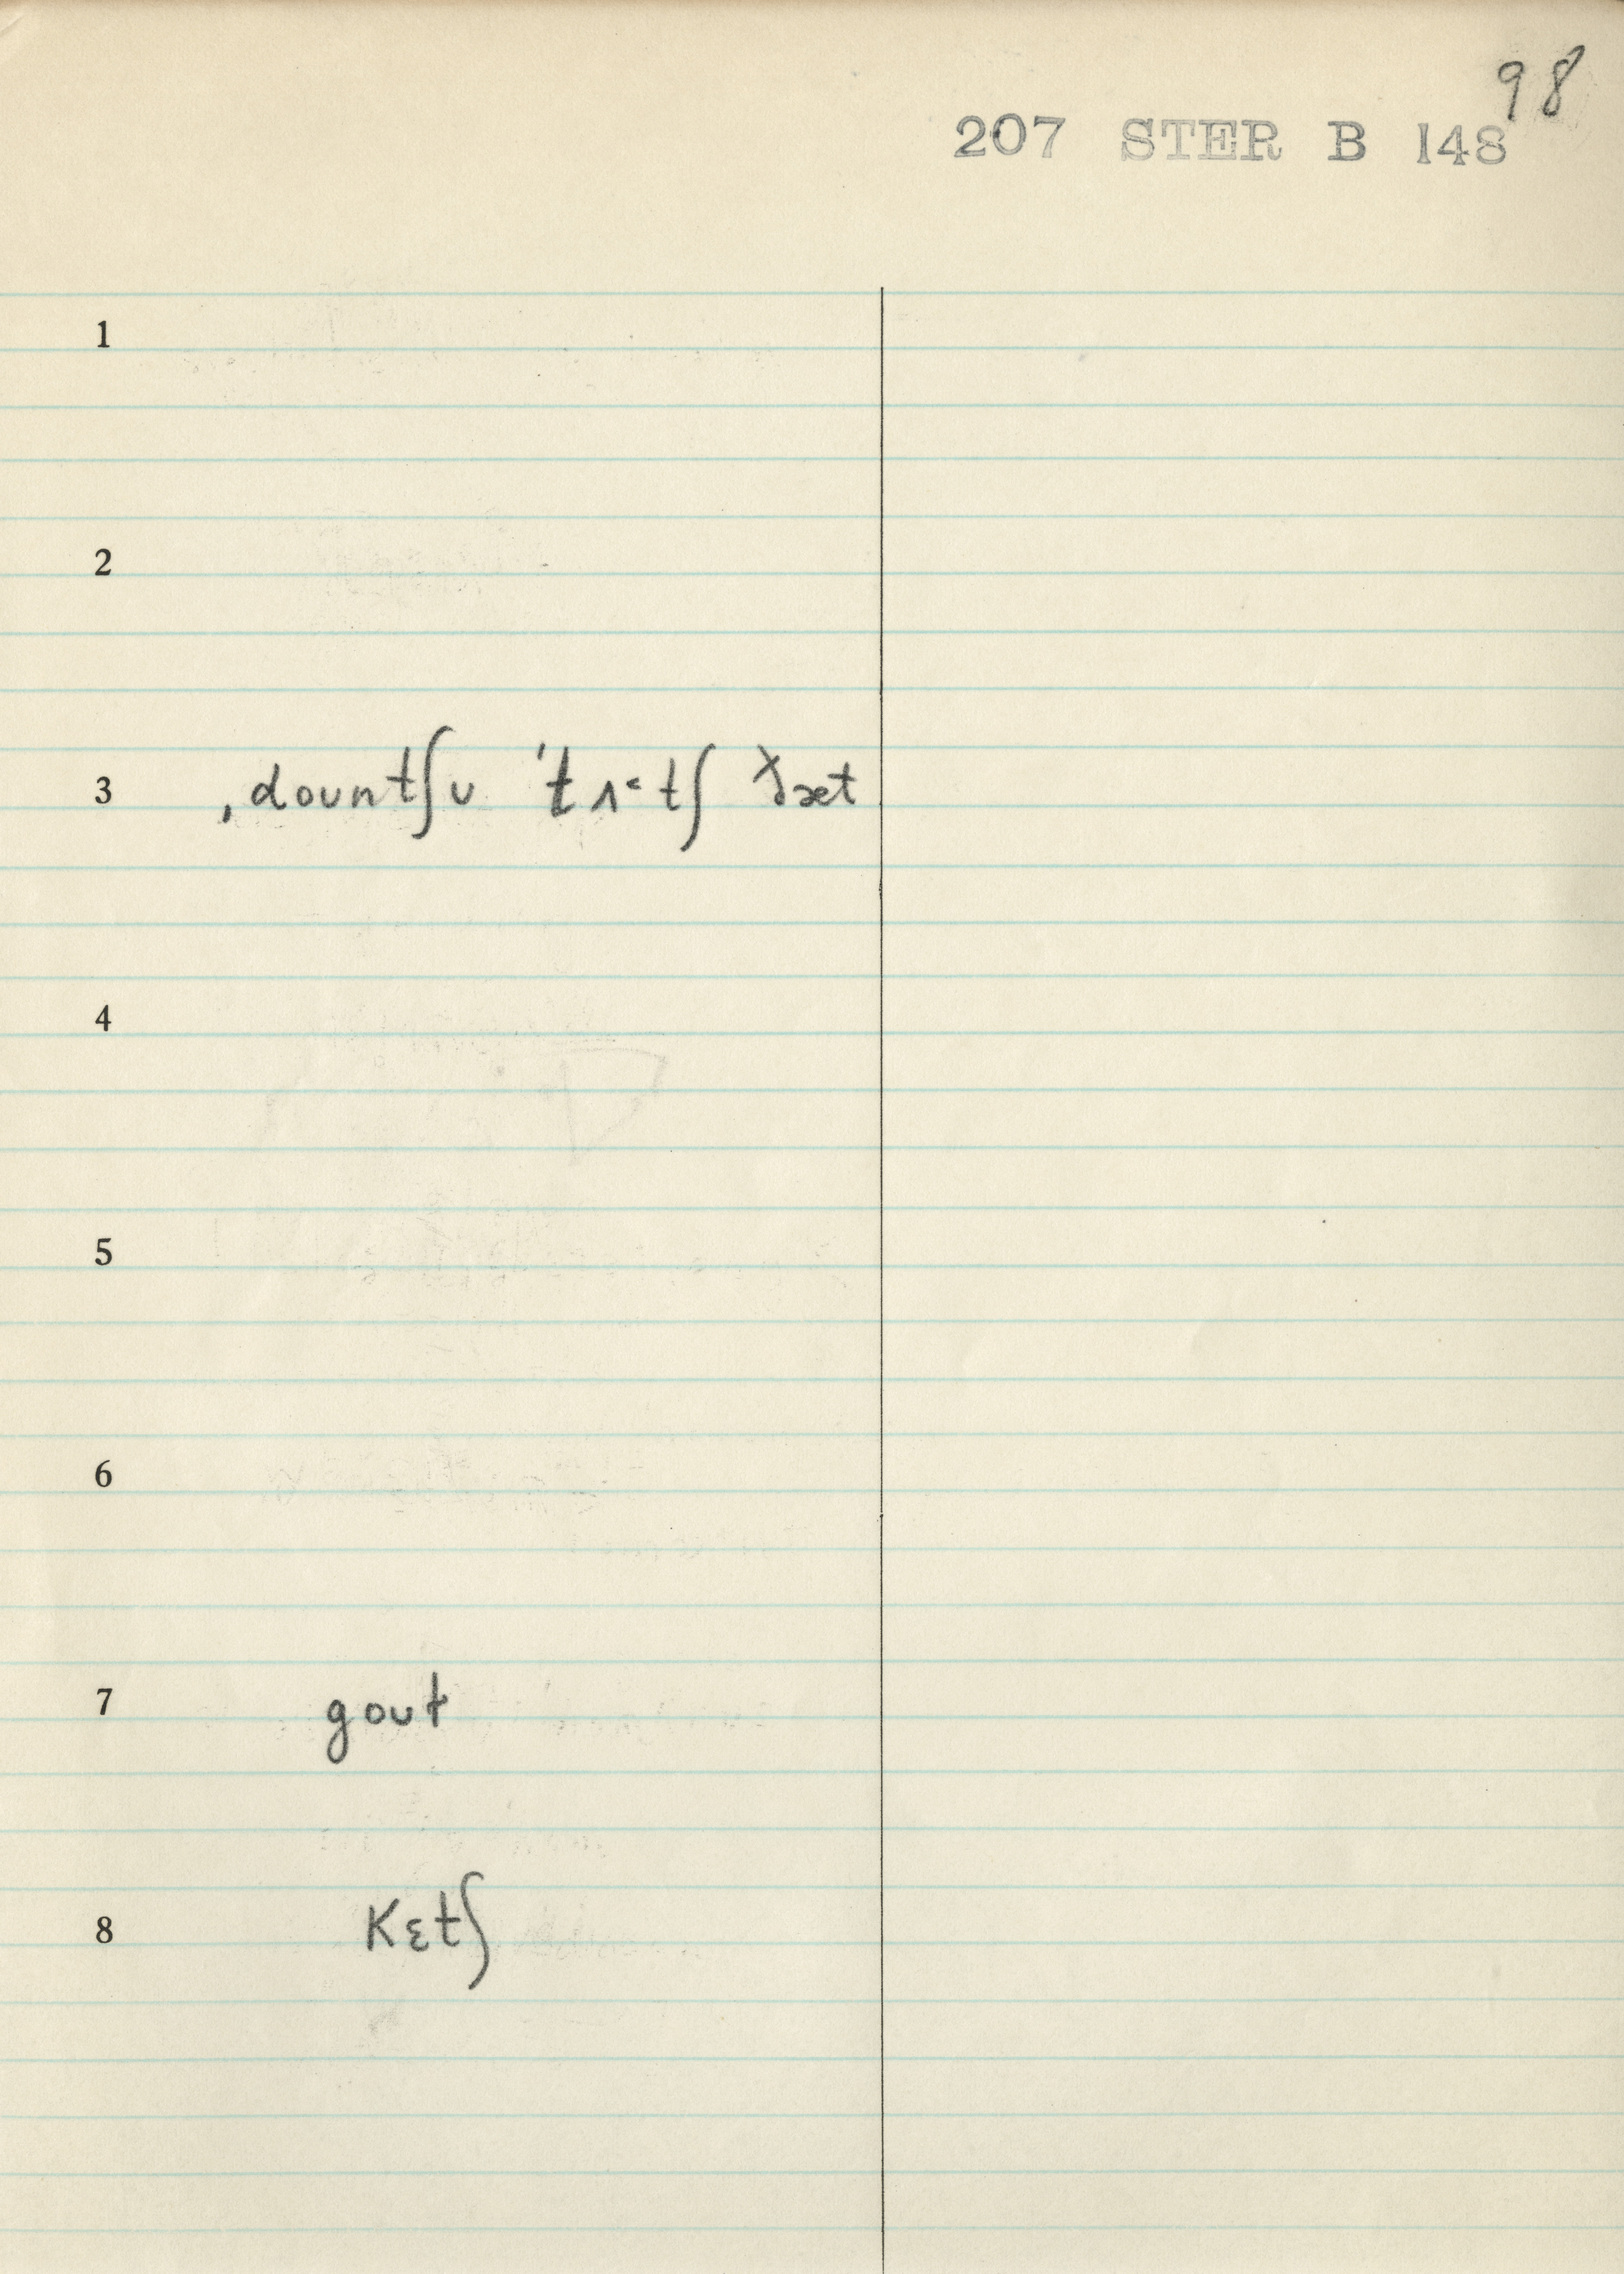 98
207 STER B 148
1
2
3 ˌdountʃu ˈtʌ˂tʃ ðæt
4
5
6
7 gout
8 kɛtʃ